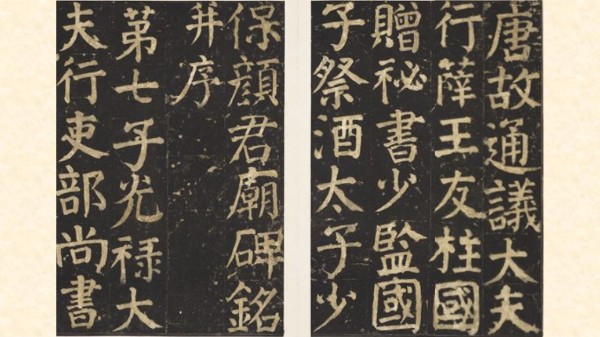 唐故通議大夫
行薛王友柱國
贈祕書少監國
子祭酒太子少
保顔君廟碑銘
并序
苐七子光禄大
夫行吏部尚書